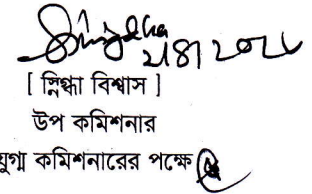 [ স্নিগ্ধা বিশ্বাস ]
উপ কমিশনার
যুগ্ম কমিশনারের পক্ষে